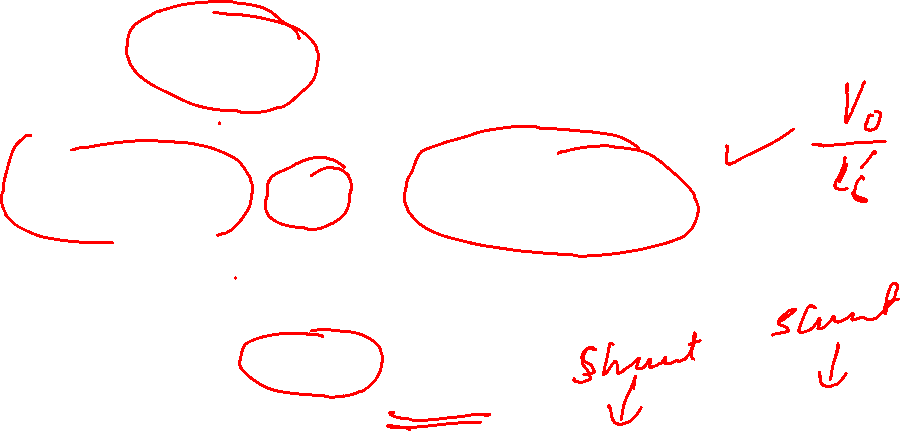 V₀
i_i
Shunt shunt